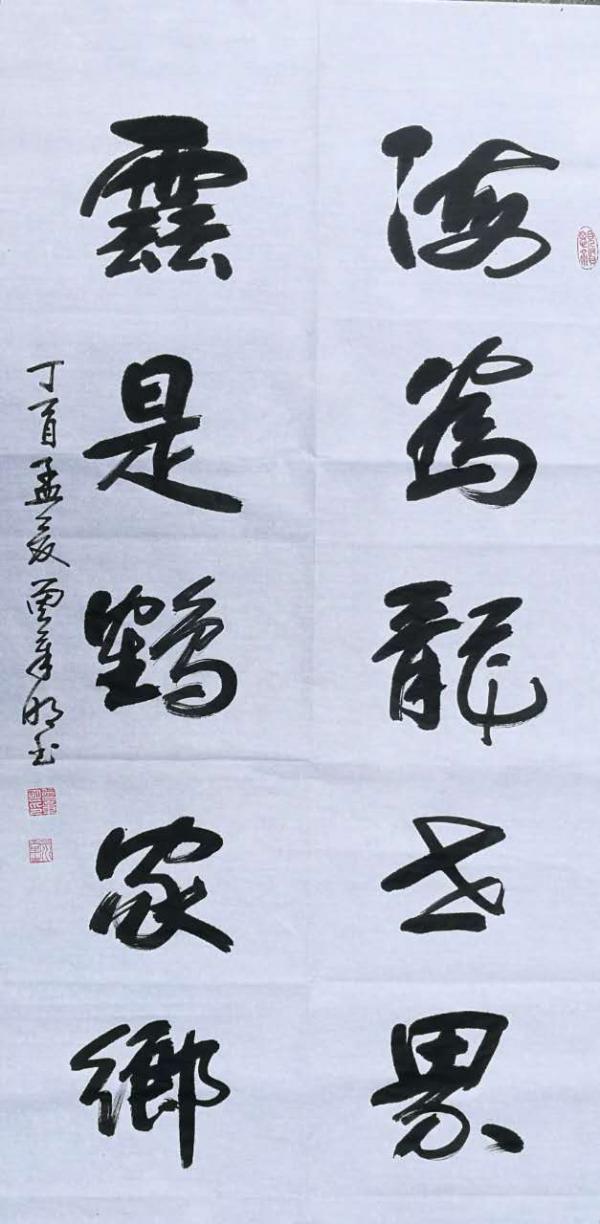 海為龍世界
雲是鶴家鄉
丁酉孟夏曹章明書